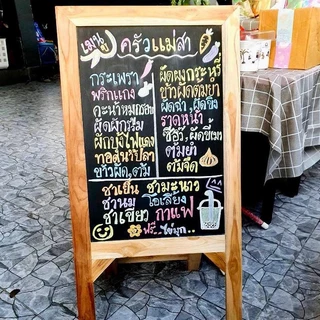 เมนู ครัวแม่สา
กระเพรา
พริกแกง
คะน้าหมูกรอบ
ผัดผักรวม
ผักบุ้งไฟแดง
ข้าวผัด, ต้ม
ผัดผงกะหรี่
ข้าวผัดต้มยำ
ผัดฉ่า, ผัดขิง
ราดหน้า
ซีอิ๊ว, ผัดขี้เมา
ต้มยำ
ต้มจืด
ชาเย็น ชามะนาว
ชานม โอเลี้ยง
ชาเขียว กาแฟ
ฟรี..ไข่มุก..